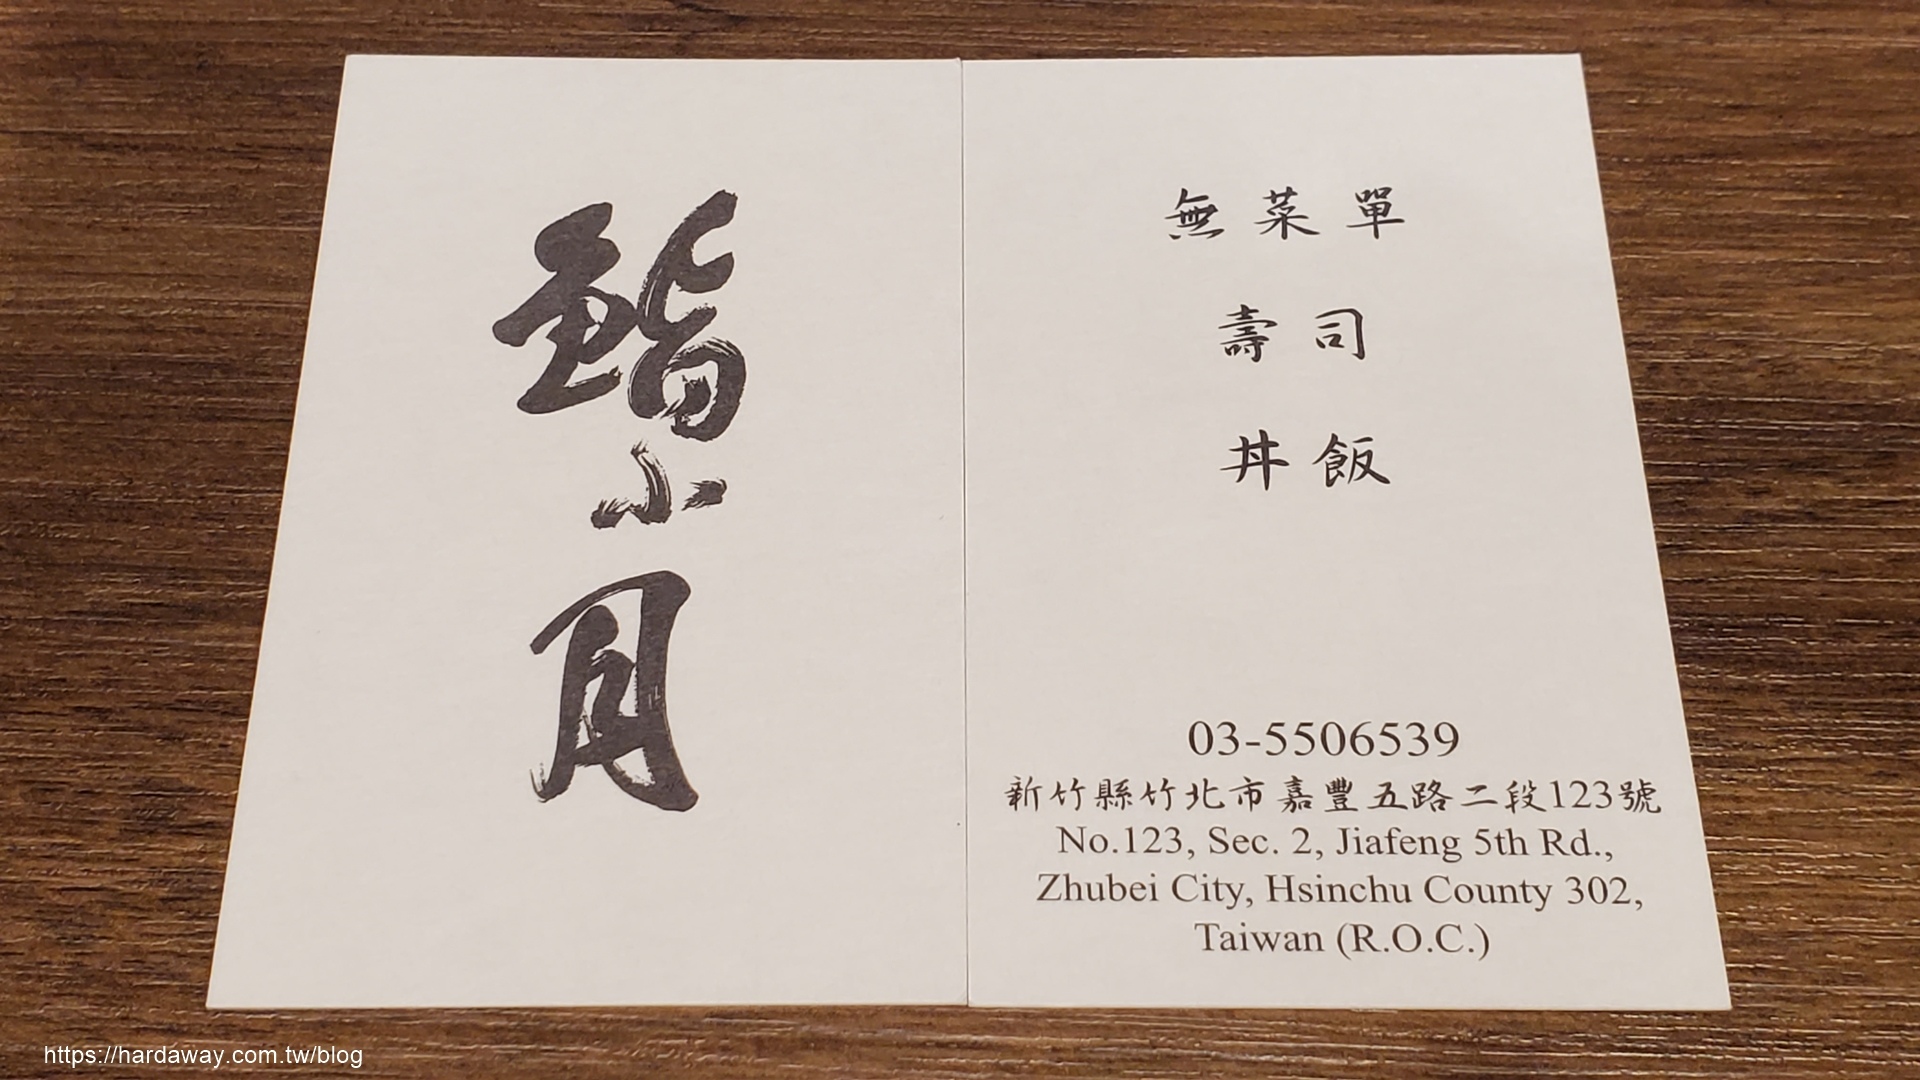 鮨
小
月
無菜單
壽司
丼飯
03-5506539
新竹縣竹北市嘉豐五路二段123號
No.123, Sec. 2, Jiafeng 5th Rd.,
Zhubei City, Hsinchu County 302,
Taiwan (R.O.C.)
https://hardaway.com.tw/blog